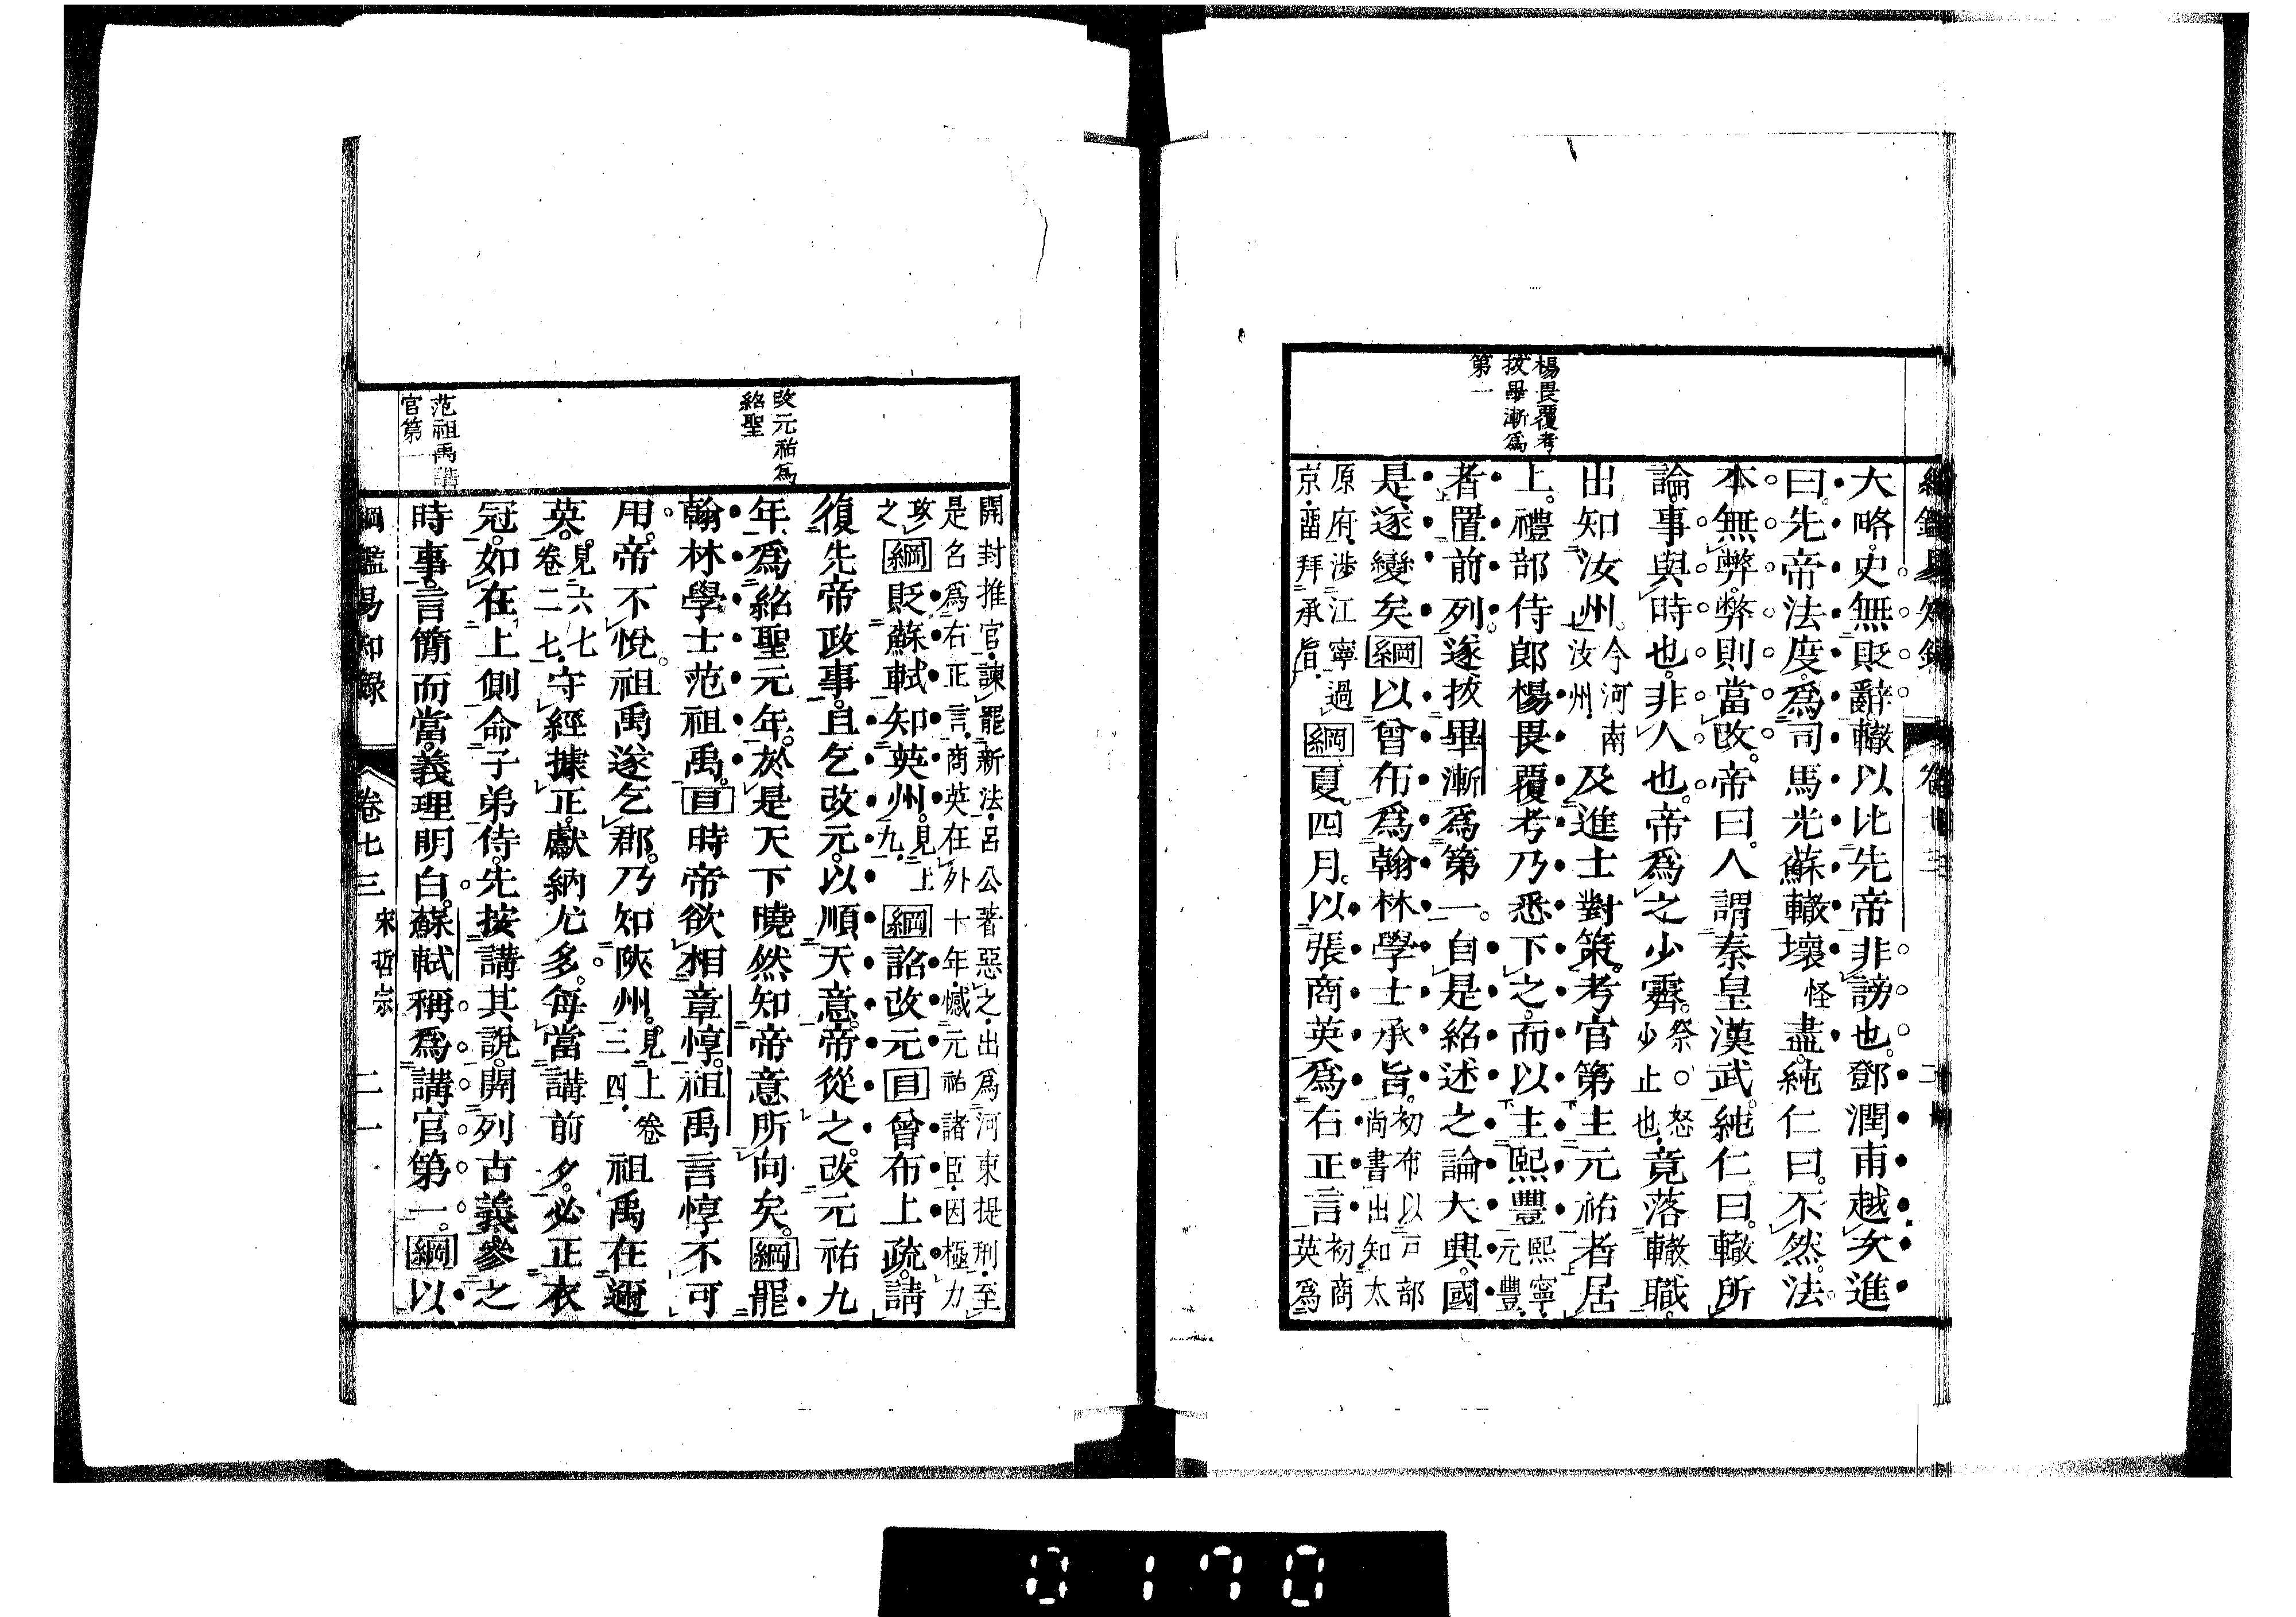 楊畏覆考
拔畢漸爲
第一
大略史無貶辭轍以比先帝非謗也鄧潤甫越次進
曰先帝法度爲司馬光蘇轍壞怪盡純仁曰不然法
本無弊弊則當改帝曰人謂秦皇漢武純仁曰轍所
論事與時也非人也帝爲之少霽祭○怒少止也竟落轍職
出知汝州今河南汝州及進士對策考官第主元祐者居
上禮部侍郎楊畏覆考乃悉下之而以主熙豐熙寧元豐
者置前列遂拔畢漸爲第一自是紹述之論大興國
是遂變矣綱以曾布爲翰林學士承旨初布以戶部尚書出知太
原府涉江寧過京留拜承旨綱夏四月以張商英爲右正言初商英爲
改元祐爲
紹聖
范祖禹講
官第一
開封推官諫罷新法呂公著惡之出爲河東提刑至
是名爲右正言商英在外十年憾元祐諸臣因極力
攻之綱貶蘇軾知英州見上九綱詔改元目曾布上疏請
復先帝政事且乞改元以順天意帝從之改元祐九
年爲紹聖元年於是天下曉然知帝意所向矣綱罷
翰林學士范祖禹目時帝欲相章惇祖禹言惇不可
用帝不悅祖禹遂乞郡乃知陝州見上卷三四祖禹在邇
英見六七卷二七守經據正獻納尤多每當講前夕必正衣
冠如在上側命子弟侍先按講其說開列古義參之
時事言簡而當義理明白蘇軾稱爲講官第一綱以
綱鑑易知錄 卷七三 宋哲宗 二一
0170